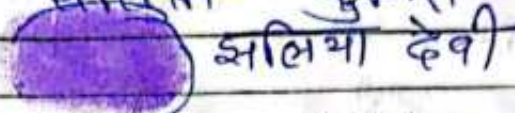 झलिया देवी